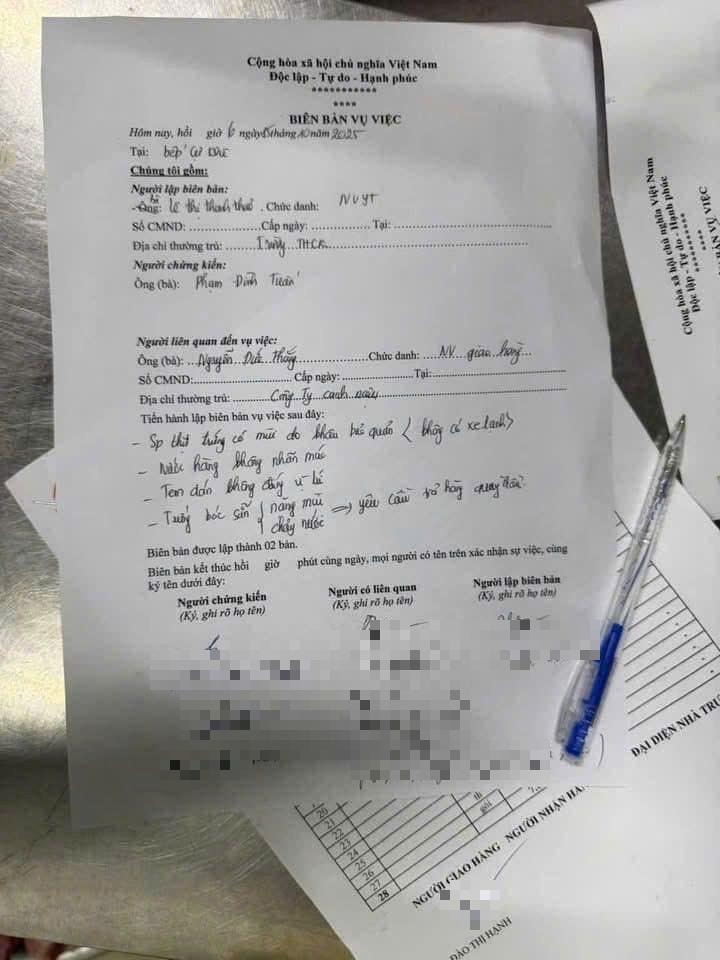 Cộng hòa xã hội chủ nghĩa Việt Nam
Độc lập - Tự do - Hạnh phúc
***********
****
BIÊN BẢN VỤ VIỆC
Hôm nay, hồi giờ 6 ngày 15 tháng 10 năm 2025
Tại: bếp Cự Khê
Chúng tôi gồm:
Người lập biên bản:
bà
Ông: Lê Thị Thanh . Chức danh: NVYT
Số CMND: .................. Cấp ngày: ............... Tại: ...............
Địa chỉ thường trú: ...... Trường THCK
Người chứng kiến:
Ông (bà): Phạm Đình Tuấn
Người liên quan đến vụ việc:
Ông (bà): ...Nguyễn Đức Thắng.................Chức danh: ...NV...giao hàng...
Số CMND:......................... Cấp ngày: ................. Tại:...............
Địa chỉ thường trú: ......... Công Ty
Tiến hành lập biên bản vụ việc sau đây:
- Sp thịt có mùi do khâu bảo quản < không có xe lạnh>
- hàng không nhãn mác
- Tem dán không đúng vị trí
- Trứng bóc sẵn { nặng mùi
chảy nước => yêu cầu trả hàng
Biên bản được lập thành 02 bản.
Biên bản kết thúc hồi giờ phút cùng ngày, mọi người có tên trên xác nhận sự việc, cùng
ký tên dưới đây:
Người chứng kiến Người có liên quan Người lập biên bản
(Ký, ghi rõ họ tên) (Ký, ghi rõ họ tên) (Ký, ghi rõ họ tên)
Cộng hòa xã hội chủ nghĩa Việt Nam
Độc lập - Tự do - Hạnh phúc
BẢN VỤ VIỆC
20
21
22
23
24
25
26
27
28
gói
ĐẠI DIỆN NHÀ TRƯ
NGƯỜI GIAO HÀNG NGƯỜI NHẬN HÀ
ĐÀO THỊ HẠNH